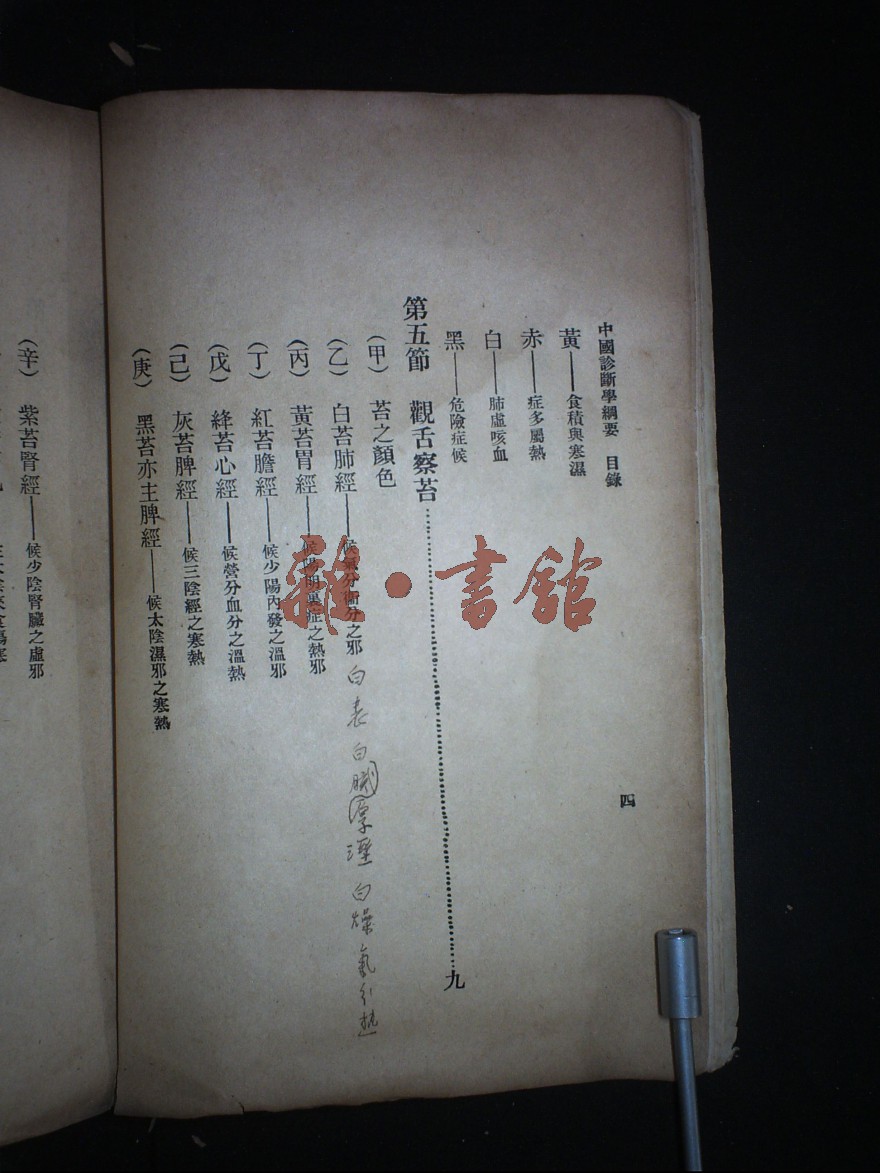 中國診斷學綱要　目錄　四
黃——食積與寒濕
赤——症多屬熱
白——肺虛咳血
黑——危險症候
第五節　觀舌察苔……九
(甲)　苔之顏色
(乙)　白苔肺經——候氣分衞分之邪　白表　白膩厚溼　白燥氣分熱
(丙)　黃苔胃經——候陽明裏症之熱邪
(丁)　紅苔膽經——候少陽內發之溫邪
(戊)　絳苔心經——候營分血分之溫熱
(己)　灰苔脾經——候三陰經之寒熱
(庚)　黑苔亦主脾經——候太陰濕邪之寒熱
(辛)　紫苔腎經——候少陰腎臟之虛邪
雜·書館